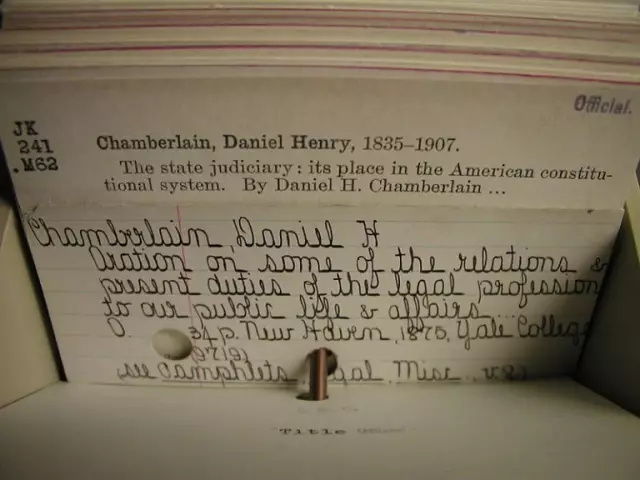 Official.
JK
241
.M62
Chamberlain, Daniel Henry, 1835–1907.
The state judiciary: its place in the American constitu-
tional system. By Daniel H. Chamberlain ...
Chamberlain, Daniel H
Oration on some of the relations &
present duties of the legal profession
to our public life & affairs ...
O. 34 p. New Haven, 1875, Yale College
see Pamphlets, Legal Misc., v.
Title